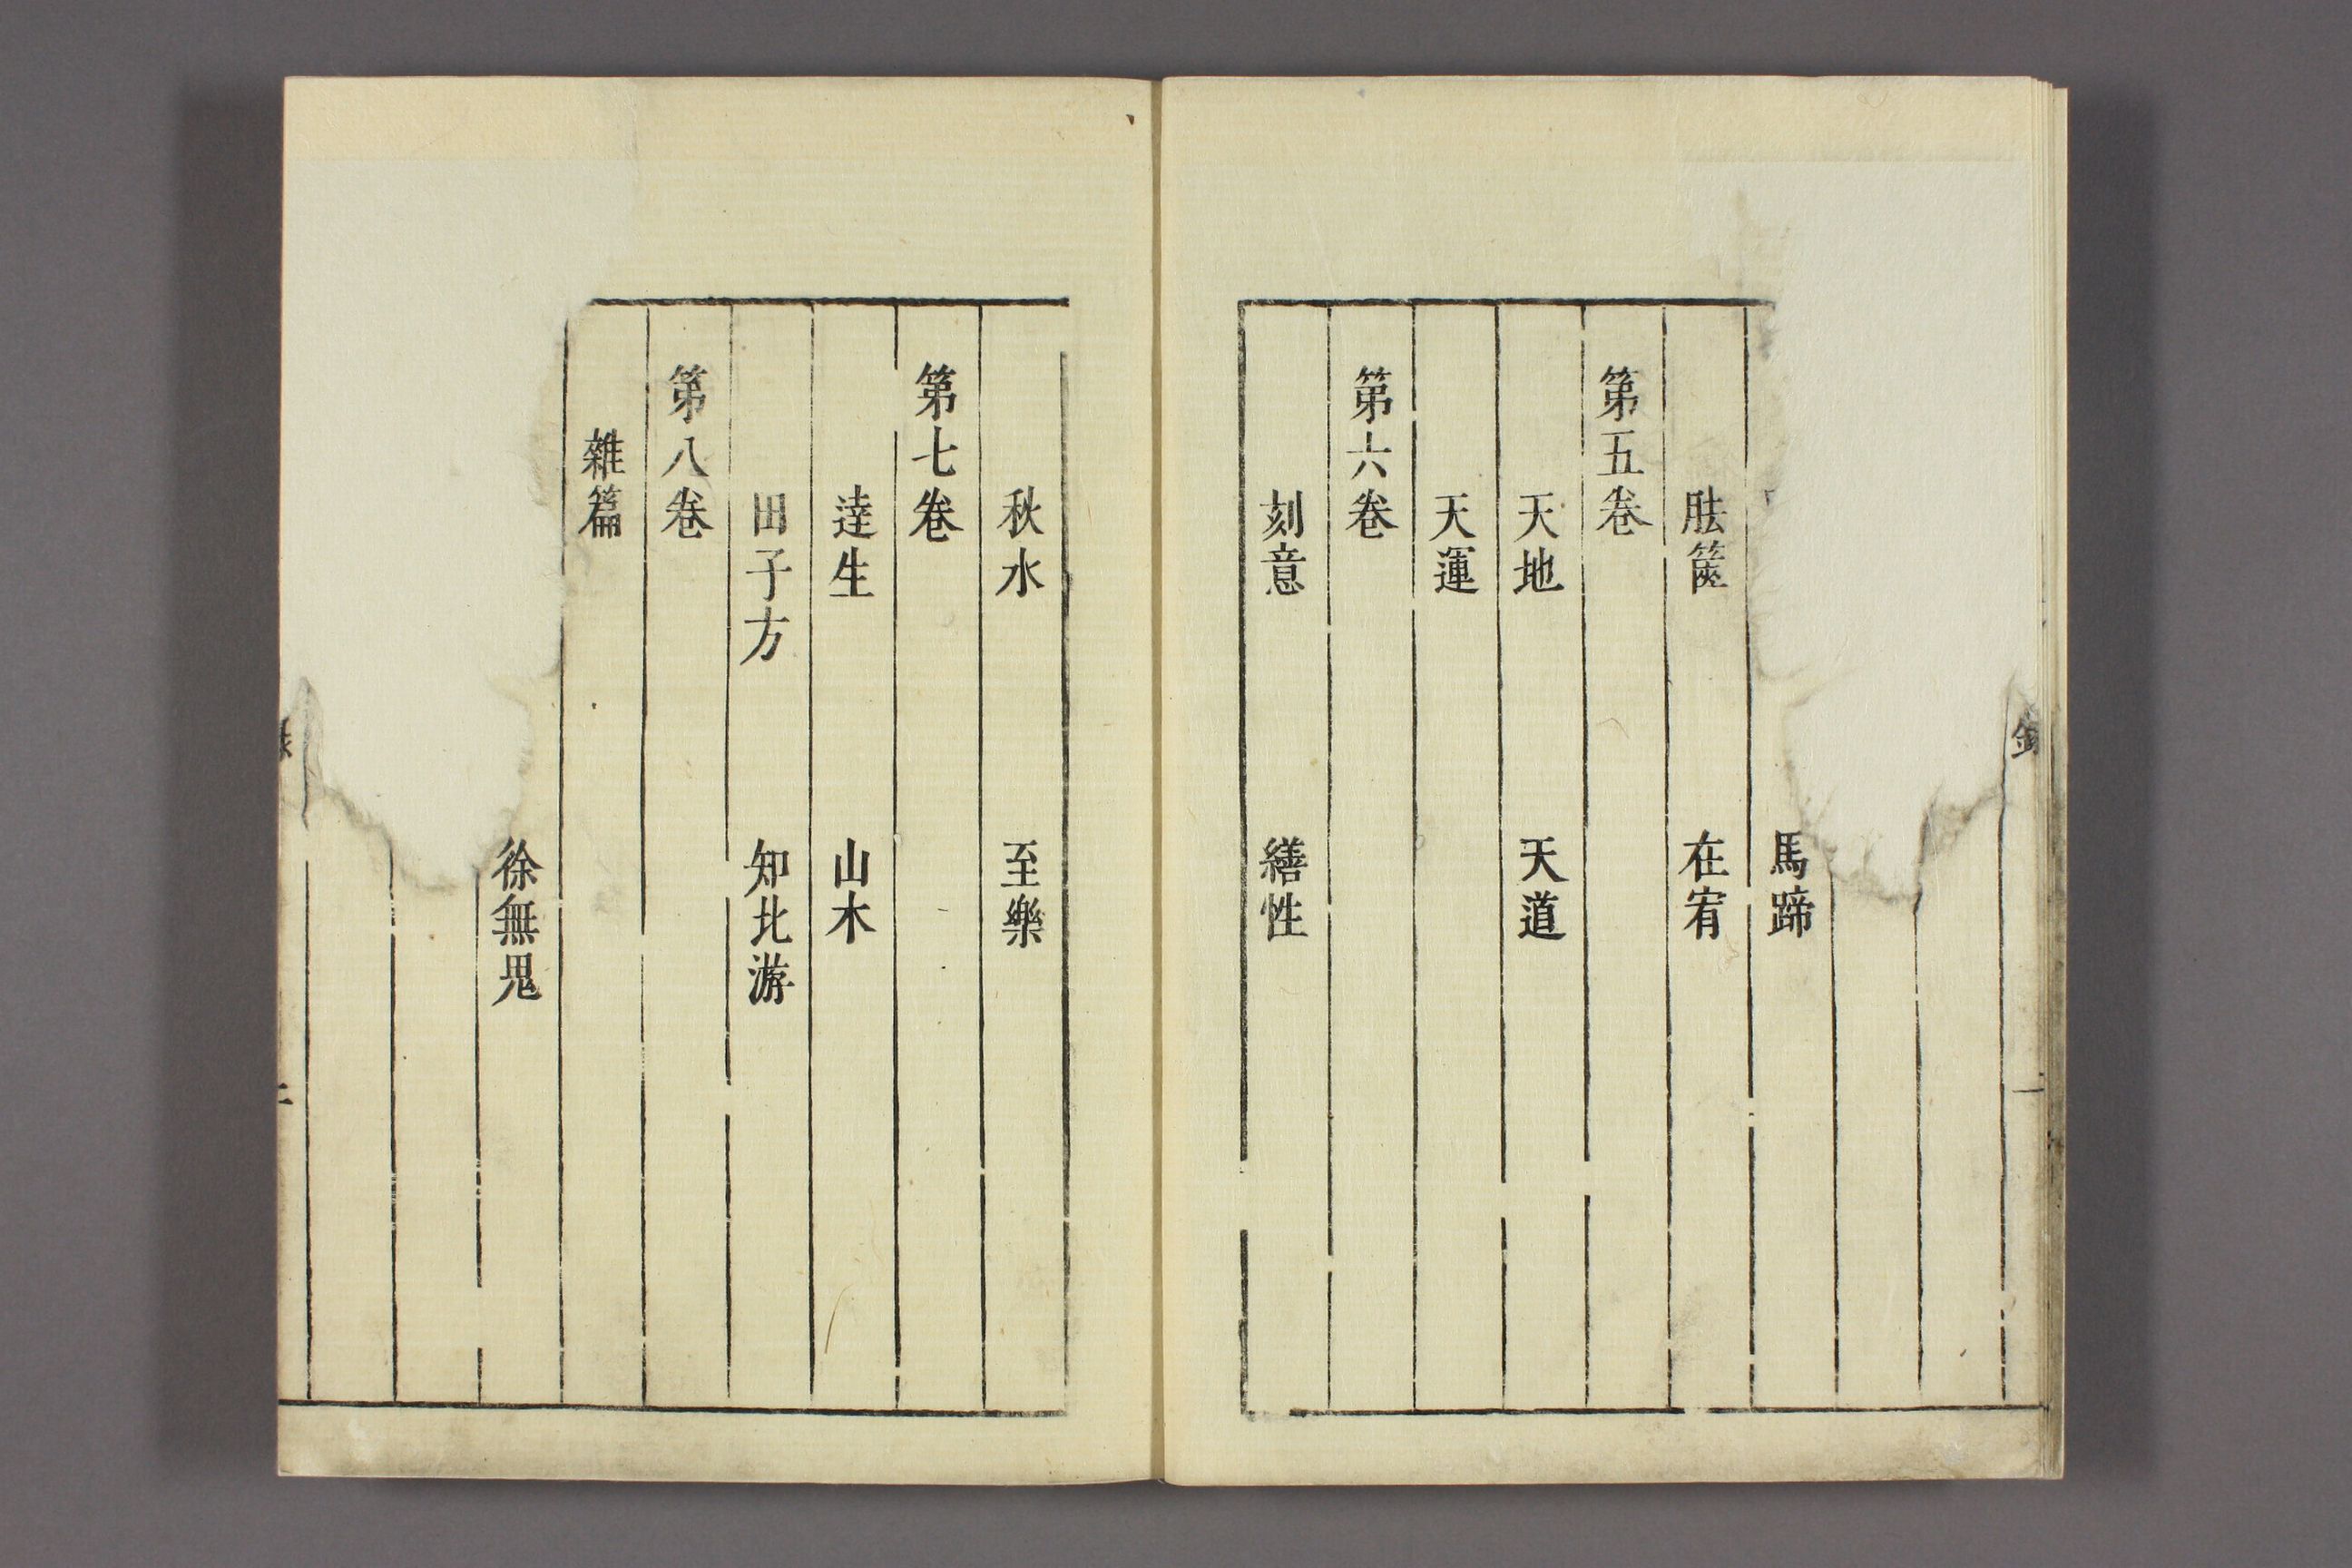 馬蹄
胠篋 在宥
第五卷
天地 天道
天運
第六卷
刻意 繕性
秋水 至樂
第七卷
達生 山木
田子方 知北游
第八卷
雜篇
徐無鬼